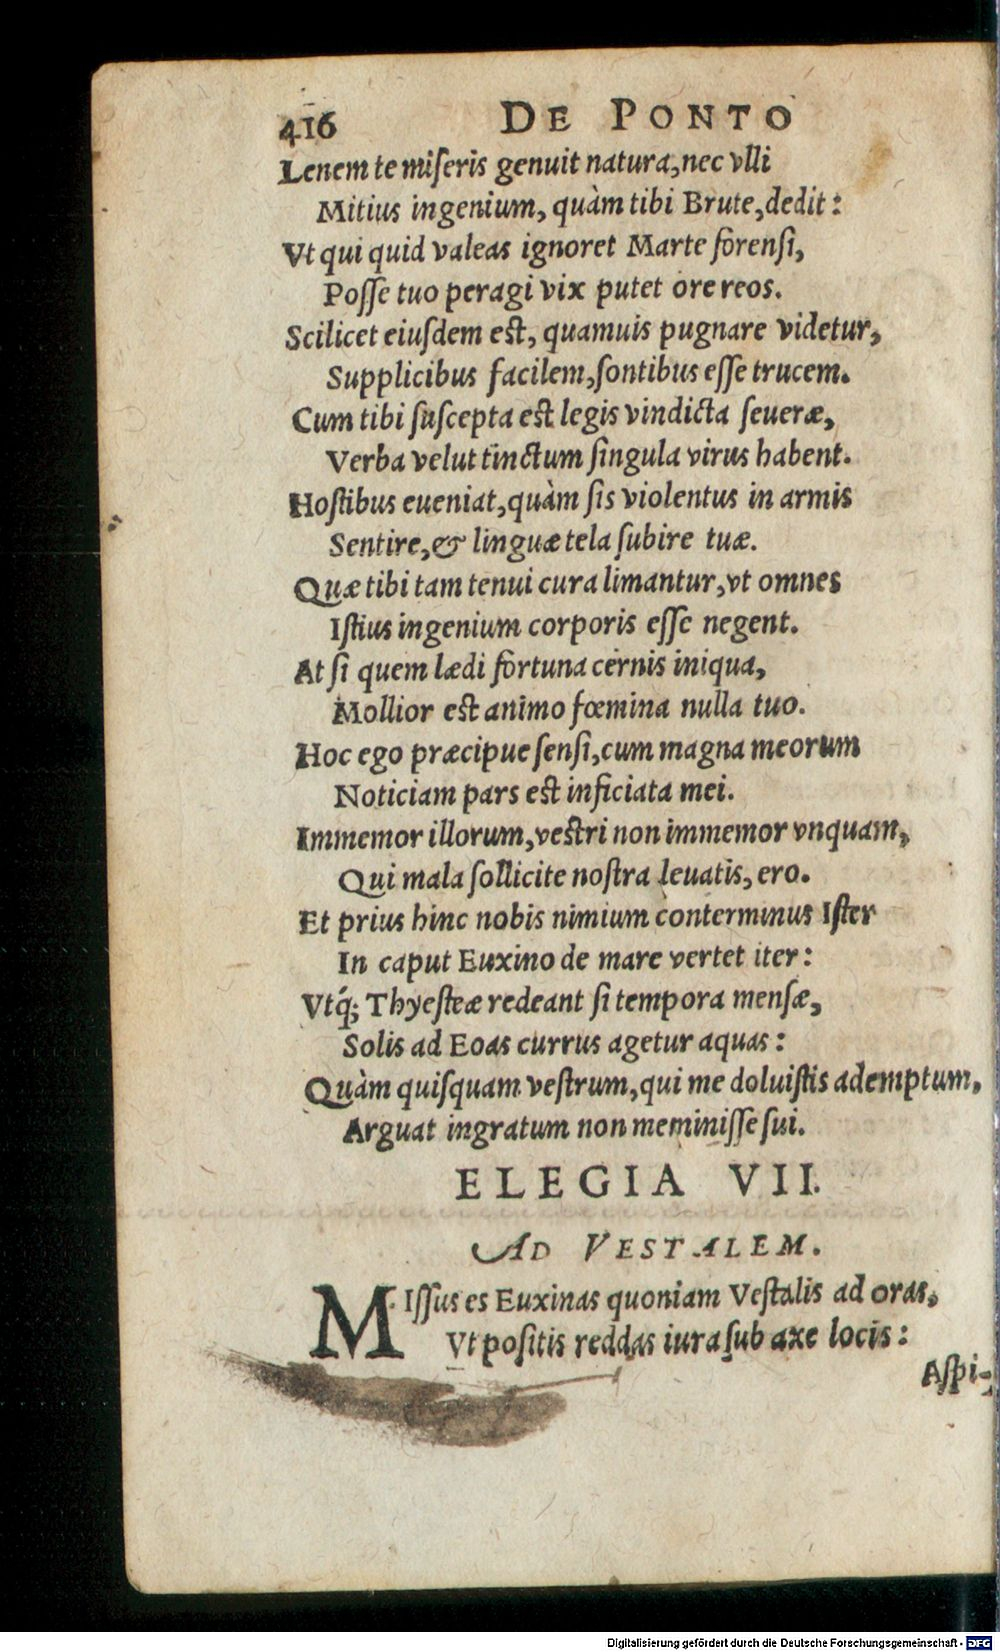 416 DE PONTO
Lenem te miſeris genuit natura, nec vlli
Mitius ingenium, quàm tibi Brute, dedit:
Vt qui quid valeas ignoret Marte forenſi,
Poſſe tuo peragi vix putet ore reos.
Scilicet eiuſdem est, quamuis pugnare videtur,
Supplicibus facilem, ſontibus eſſe trucem.
Cum tibi ſuſcepta est legis vindicta ſeueræ,
Verba velut tinctum ſingula virus habent.
Hoſtibus eueniat, quàm ſis violentus in armis
Sentire, & linguæ tela ſubire tuæ.
Quæ tibi tam tenui cura limantur, vt omnes
Iſtius ingenium corporis eſſe negent.
At ſi quem lædi fortuna cernis iniqua,
Mollior est animo fœmina nulla tuo.
Hoc ego præcipue ſenſi, cum magna meorum
Noticiam pars est inficiata mei.
Immemor illorum, vestri non immemor vnquam,
Qui mala ſollicite noſtra leuatis, ero.
Et prius hinc nobis nimium conterminus Iſter
In caput Euxino de mare vertet iter:
Vtq́; Thyeſteæ redeant ſi tempora menſæ,
Solis ad Eoas currus agetur aquas:
Quàm quiſquam veſtrum, qui me doluiſtis ademptum,
Arguat ingratum non meminiſſe ſui.
ELEGIA VII.
AD VESTALEM.
MIſſus es Euxinas quoniam Veſtalis ad oras,
Vt poſitis reddas iura ſub axe locis:
Aſpi-
Digitalisierung gefördert durch die Deutsche Forschungsgemeinschaft - DFG